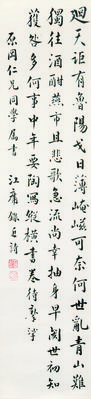 廻天詎有魯陽戈日薄崦嵫可奈何世亂青山難
獨往酒酣燕市且悲歌急流尚幸抽身早閱世初知
護多何事中年要陶寫縱橫書卷待摩挲
原岡仁兄同學屬書 江庸錄近詩